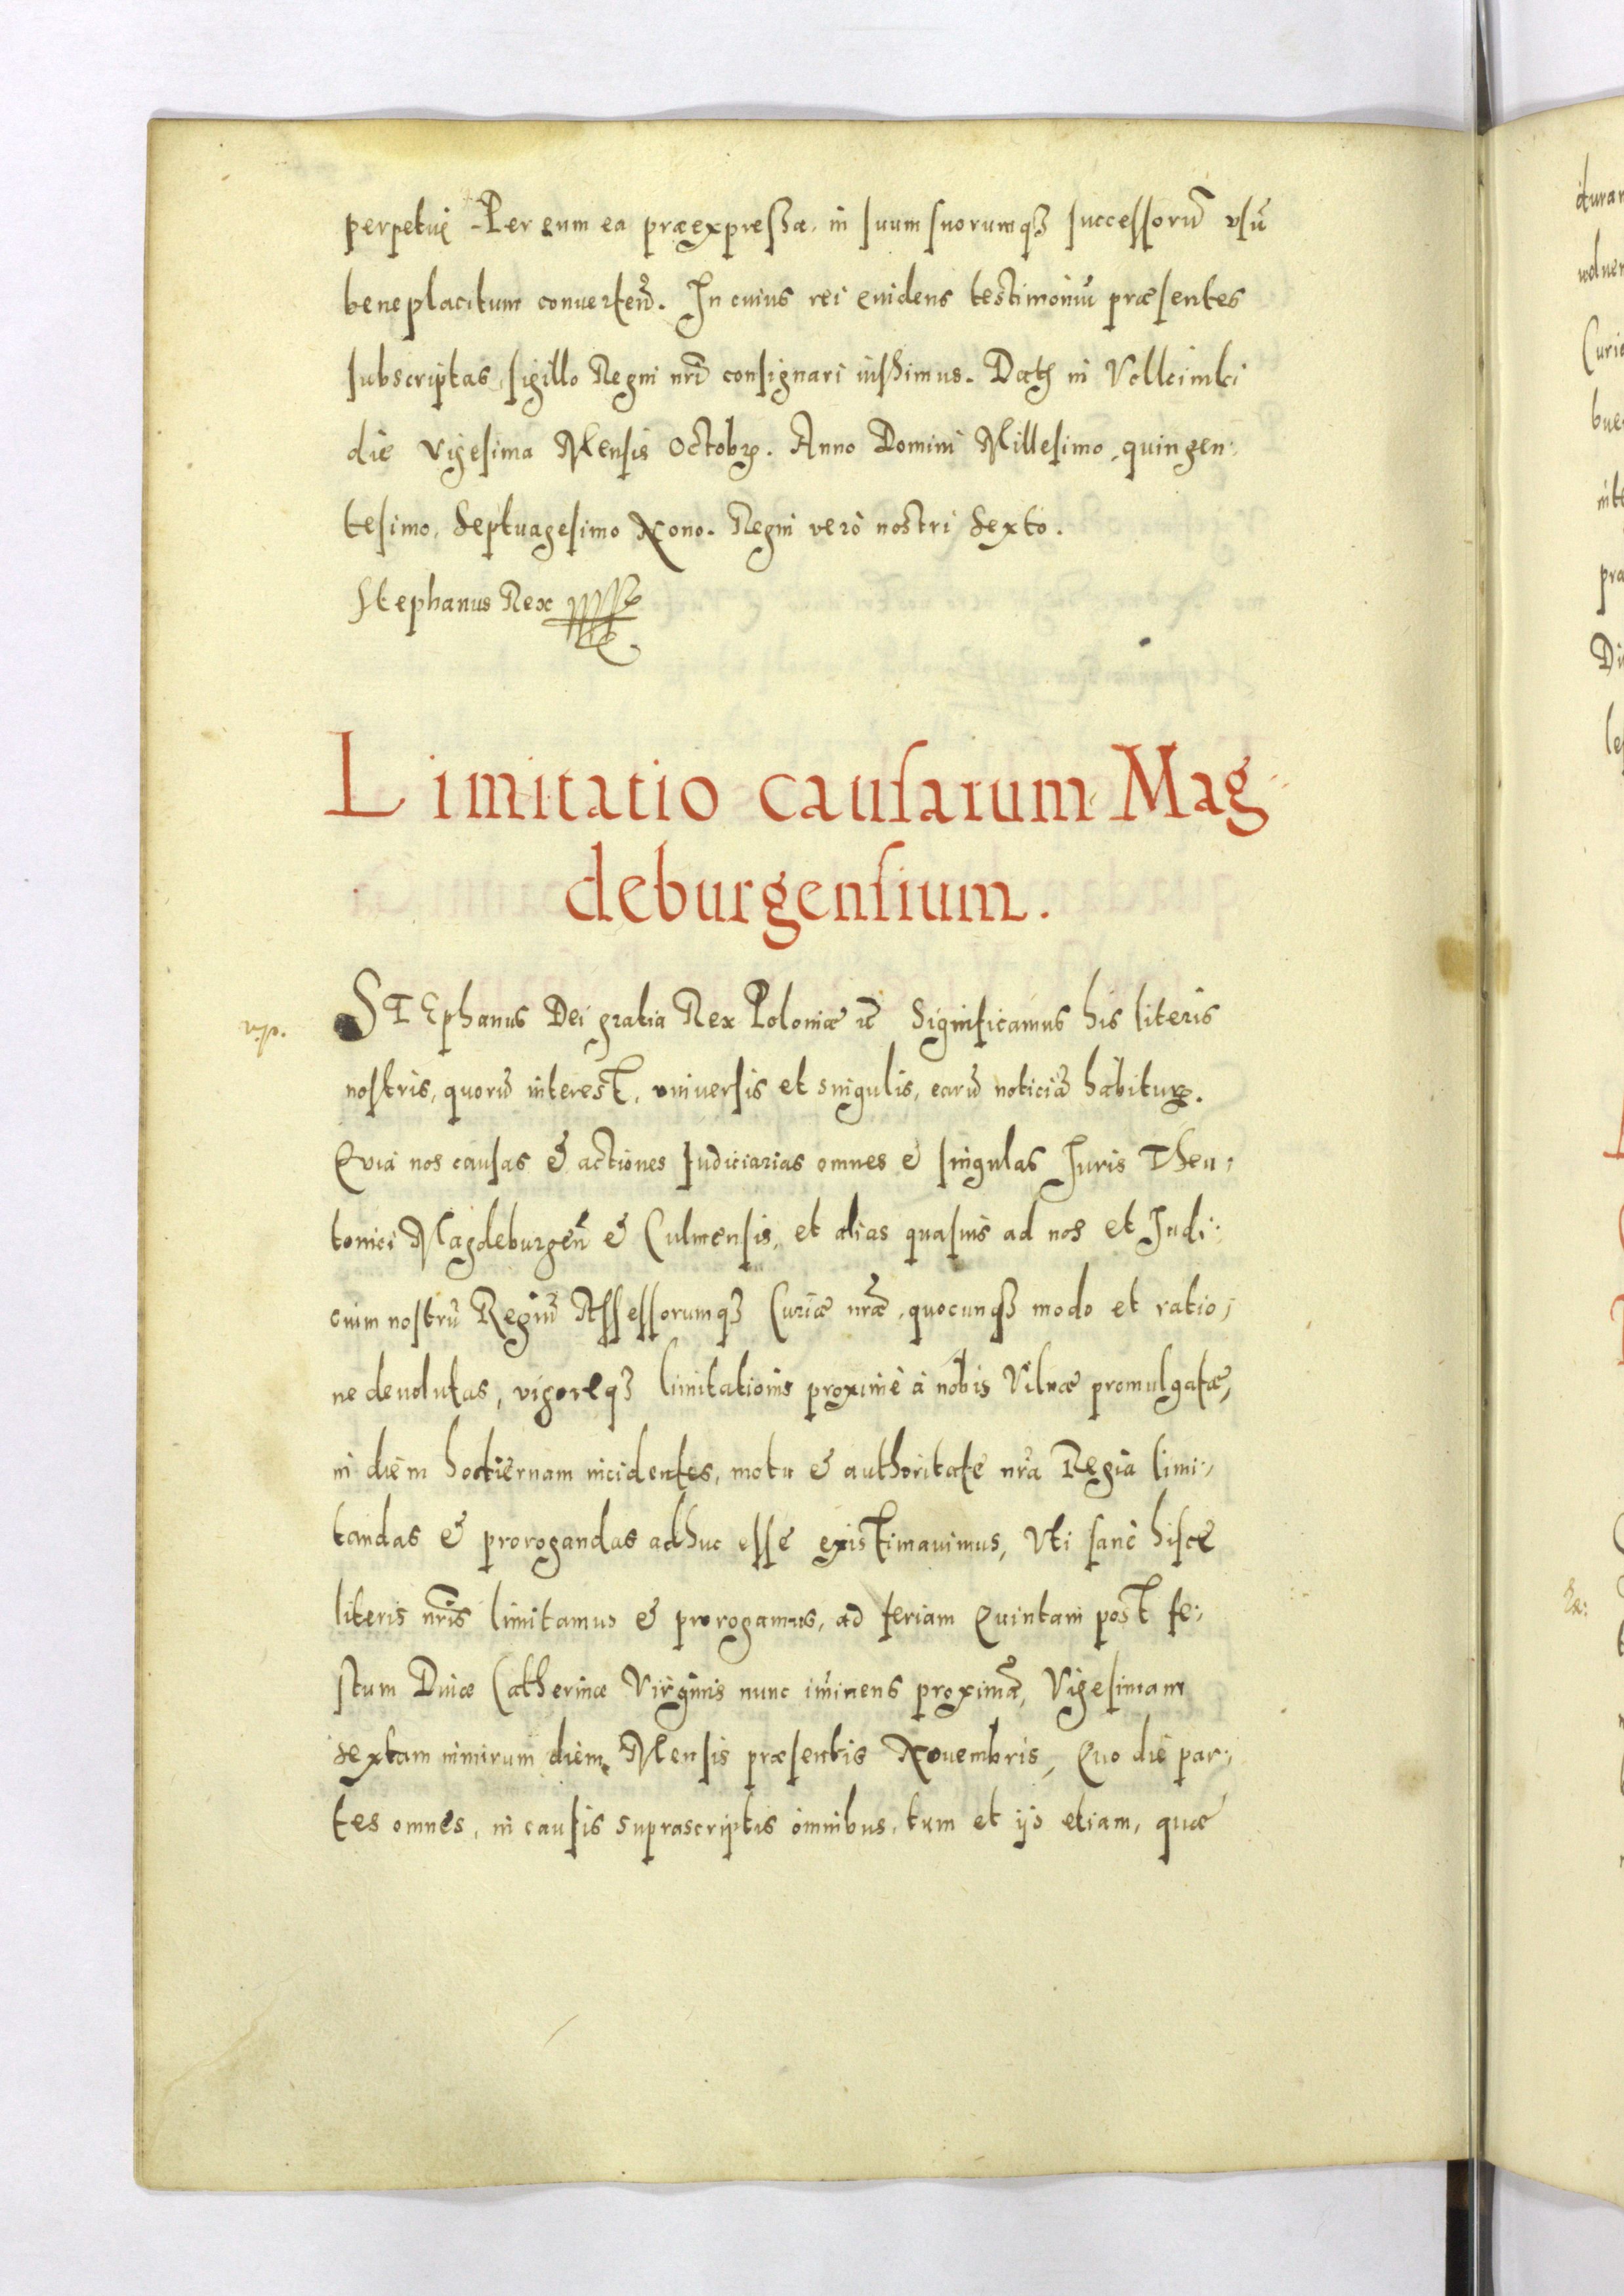 perpetuę Per eum ea præexpreſſa, in ſuum ſuorumqꝫ ſucceſſorū uſū
beneplacitum conuertend̄. In cuius rei euidens testimoniū præſentes
ſubscriptas, ſigillo Regni nr̄i conſignari iuſſimus. Datȝ in
die Vigeſima Menſis Octobrꝭ. Anno Domini Milleſimo, quingen-
tesimo, Septuageſimo Nono. Regni verò nostri Sexto.
Stephanus Rex
Limitatio cauſarum Mag
deburgenſium.
STEphanus Dei gratia Rex Poloniæ ꝛc̄ Significamus his literis
noſtris, quorū interest, vniuerſis et singulis, earū noticiā habiturꝭ.
Quia nos cauſas & actiones Iudiciarias omnes & ſingulas Iuris Theu-
tonici Magdeburgen̄ & Culmenſis, et alias quaſuis ad nos et Iudi-
cium nostrū Regiū Aſſeſſorumqꝫ Curiæ nr̄æ, quocunqꝫ modo et ratio-
ne deuolutas, vigoreqꝫ limitationis proximè à nobis Vilnæ promulgatæ,
in diem hodiernam incidentes, motu & authoritate nr̄a Regia limi-
tandas & prorogandas adhuc eſſe existimauimus, Vti ſanè hiſce
literis nr̄is limitamus & prorogamus, ad feriam Quintam post fe-
ſtum Diuæ Catherinæ Virginis nunc im̄inens proximā, Vigeſimam
sextam nimirum diem, Menſis præſentis Nouembris, Quo die par-
tes omnes, in cauſis suprascriptis omnibus, tum et ijs etiam, quæ